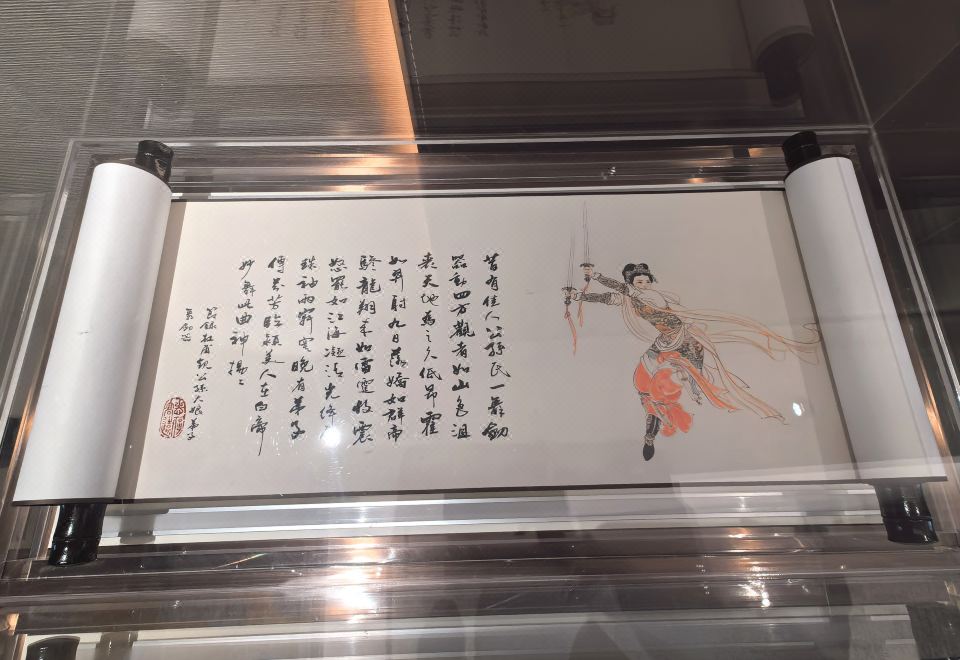 昔有佳人公孫氏一舞劍
器動四方觀者如山色沮
喪天地為之久低昂霍
如羿射九日落矯如群帝
驂龍翔来如雷霆收震
怒罷如江海凝清光絳
珠袖兩寂寞晚有弟子
傳芬芳臨潁美人在白帝
妙舞此曲神揚々
節錄杜甫觀公孫大娘弟子
舞劍器